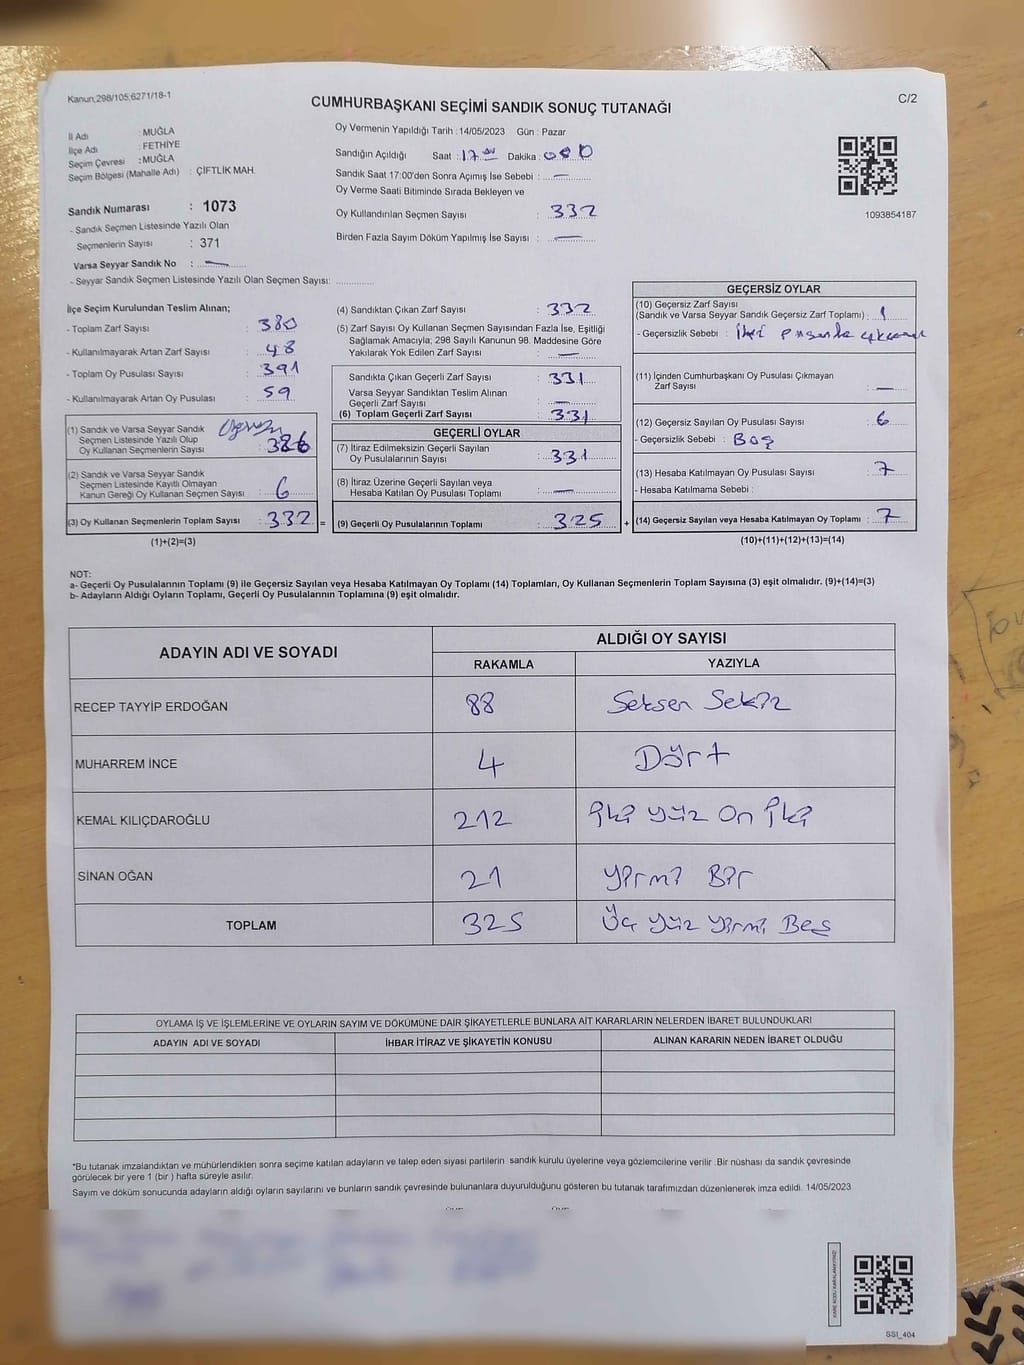 Kanun;298/105;6271/18-1
CUMHURBAŞKANI SEÇİMİ SANDIK SONUÇ TUTANAĞI
C/2
İl Adı : MUĞLA
İlçe Adı : FETHİYE
Seçim Çevresi : MUĞLA
Seçim Bölgesi (Mahalle Adı) : ÇİFTLİK MAH.
Sandık Numarası : 1073
- Sandık Seçmen Listesinde Yazılı Olan
Seçmenlerin Sayısı : 371
Varsa Seyyar Sandık No : —
- Seyyar Sandık Seçmen Listesinde Yazılı Olan Seçmen Sayısı:
Oy Vermenin Yapıldığı Tarih : 14/05/2023 Gün : Pazar
Sandığın Açıldığı Saat : 17 Dakika :
Sandık Saat 17:00'den Sonra Açımış İse Sebebi : —
Oy Verme Saati Bitiminde Sırada Bekleyen ve
Oy Kullandırılan Seçmen Sayısı : 332
Birden Fazla Sayım Döküm Yapılmış İse Sayısı : —
1093854187
İlçe Seçim Kurulundan Teslim Alınan;
- Toplam Zarf Sayısı : 380
- Kullanılmayarak Artan Zarf Sayısı : 48
- Toplam Oy Pusulası Sayısı : 391
- Kullanılmayarak Artan Oy Pusulası : 59
(1) Sandık ve Varsa Seyyar Sandık
Seçmen Listesinde Yazılı Olup
Oy Kullanan Seçmenlerin Sayısı : 326
(2) Sandık ve Varsa Seyyar Sandık
Seçmen Listesinde Kayıtlı Olmayan
Kanun Gereği Oy Kullanan Seçmen Sayısı : 6
(3) Oy Kullanan Seçmenlerin Toplam Sayısı : 332 =
(1)+(2)=(3)
(4) Sandıktan Çıkan Zarf Sayısı : 332
(5) Zarf Sayısı Oy Kullanan Seçmen Sayısından Fazla İse, Eşitliği
Sağlamak Amacıyla; 298 Sayılı Kanunun 98. Maddesine Göre
Yakılarak Yok Edilen Zarf Sayısı : —
Sandıkta Çıkan Geçerli Zarf Sayısı : 331
Varsa Seyyar Sandıktan Teslim Alınan
Geçerli Zarf Sayısı : —
(6) Toplam Geçerli Zarf Sayısı : 331
GEÇERLİ OYLAR
(7) İtiraz Edilmeksizin Geçerli Sayılan
Oy Pusulalarının Sayısı : 331
(8) İtiraz Üzerine Geçerli Sayılan veya
Hesaba Katılan Oy Pusulası Toplamı : —
(9) Geçerli Oy Pusulalarının Toplamı : 325 +
GEÇERSİZ OYLAR
(10) Geçersiz Zarf Sayısı
(Sandık ve Varsa Seyyar Sandık Geçersiz Zarf Toplamı) : 1
- Geçersizlik Sebebi :
(11) İçinden Cumhurbaşkanı Oy Pusulası Çıkmayan
Zarf Sayısı : —
(12) Geçersiz Sayılan Oy Pusulası Sayısı : 6
- Geçersizlik Sebebi : Boş
(13) Hesaba Katılmayan Oy Pusulası Sayısı : 7
- Hesaba Katılmama Sebebi :
(14) Geçersiz Sayılan veya Hesaba Katılmayan Oy Toplamı : 7
(10)+(11)+(12)+(13)=(14)
NOT:
a- Geçerli Oy Pusulalarının Toplamı (9) ile Geçersiz Sayılan veya Hesaba Katılmayan Oy Toplamı (14) Toplamları, Oy Kullanan Seçmenlerin Toplam Sayısına (3) eşit olmalıdır. (9)+(14)=(3)
b- Adayların Aldığı Oyların Toplamı, Geçerli Oy Pusulalarının Toplamına (9) eşit olmalıdır.
ADAYIN ADI VE SOYADI ALDIĞI OY SAYISI
RAKAMLA YAZIYLA
RECEP TAYYİP ERDOĞAN 88 Seksen Sekiz
MUHARREM İNCE 4 Dört
KEMAL KILIÇDAROĞLU 212 İki yüz On İki
SİNAN OĞAN 21 Yirmi Bir
TOPLAM 325 Üç yüz yirmi Beş
OYLAMA İŞ VE İŞLEMLERİNE VE OYLARIN SAYIM VE DÖKÜMÜNE DAİR ŞİKAYETLERLE BUNLARA AİT KARARLARIN NELERDEN İBARET BULUNDUKLARI
ADAYIN ADI VE SOYADI İHBAR İTİRAZ VE ŞİKAYETİN KONUSU ALINAN KARARIN NEDEN İBARET OLDUĞU
*Bu tutanak imzalandıktan ve mühürlendikten sonra seçime katılan adayların ve talep eden siyasi partilerin sandık kurulu üyelerine veya gözlemcilerine verilir .Bir nüshası da sandık çevresinde
görülecek bir yere 1 (bir ) hafta süreyle asılır.
Sayım ve döküm sonucunda adayların aldığı oyların sayılarını ve bunların sandık çevresinde bulunanlara duyurulduğunu gösteren bu tutanak tarafımızdan düzenlenerek imza edildi. 14/05/2023
KARE KODU KARALAMAYINIZ!
SSI_404